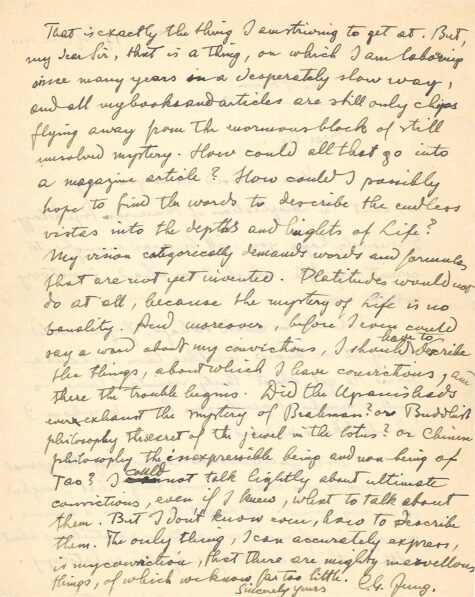 That is exactly the thing I am striving to get at. But,
my dear Sir, that is a thing, on which I am laboring
since many years in a desperately slow way,
and all my books and articles are still only chips
flying away from the enormous block of still
unsolved mystery. How could all that go into
a magazine article? How could I possibly
hope to find the words to describe the endless
vistas into the depths and hights of Life?
My vision categorecally demands words and formulas
that are not yet invented. Platitudes would not
do at all, because the mystery of Life is no
banality. And moreover, before I even could
say a word about my convictions, I should have to describe
the things, about which I have convictions, and
there the trouble begins. Did the Upanishads
ever exhaust the mystery of Brahman? or Buddhist
philosophy the secret of the jewel in the lotus? or Chinese
philosophy the inexpressible being and non being of
Tao? I could not talk lightly about ultimate
convictions, even if I knew, what to talk about
them. But I don't know even, how to describe
them. The only thing, I can accurately express,
is my conviction, that there are mighty marvellous
things, of which we know far too little.
Sincerely yours C.G. Jung.